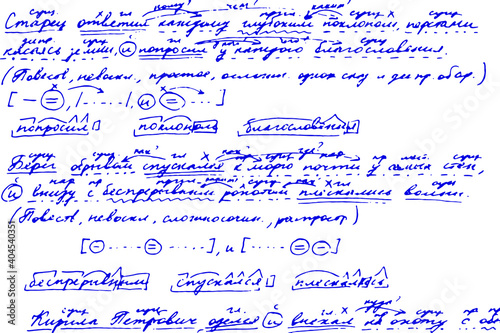 Старец ответил каждому глубоким поклоном, перстами
касаясь земли, и попросил у каждого благословения.
(Повеств., невоскл., простое, ослож. однор. сказ. и деепр. обор.)
[ – = , / ....... / , и = ....... ]
попросил поклоном благословения
Берег обрывом спускался к морю почти у самых стен,
и внизу с беспрерывным рокотом плескались волны.
(Повеств., невоскл., сложносочин., распростр.)
[ – ....... = ....... ] , и [ ....... = – ]
беспрерывным спускался плескались
Кирила Петрович оделся и выехал на охоту с об